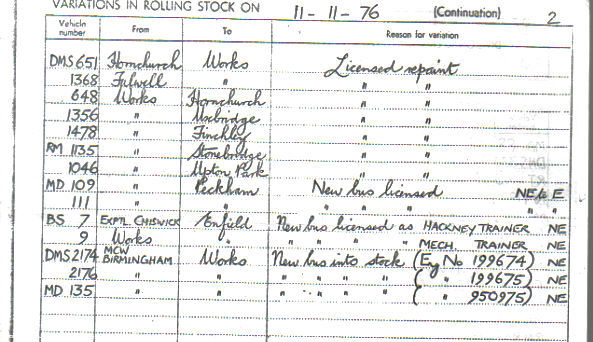 VARIATIONS IN ROLLING STOCK ON 11-11-76 (Continuation) 2
Vehicle number From To Reason for variation
DMS 651 Hornchurch Works Licensed repaint
1368 Fulwell " " "
648 Works Hornchurch " "
1356 " Uxbridge " "
1478 " Finchley " "
RM 1135 " Stonebridge " "
1046 " Upton Park " "
MD 109 " Peckham New bus licensed NE to E
111 " " " " " " "
BS 7 EXPTL CHISWICK Enfield New bus licensed as HACKNEY TRAINER NE
9 Works " " " " " MECH. TRAINER NE
DMS 2174 MCW BIRMINGHAM Works New bus into stock (Eng No 199674) NE
2176 " " " " " " ( " 199675) NE
MD 135 " " " " " " ( " 950975) NE